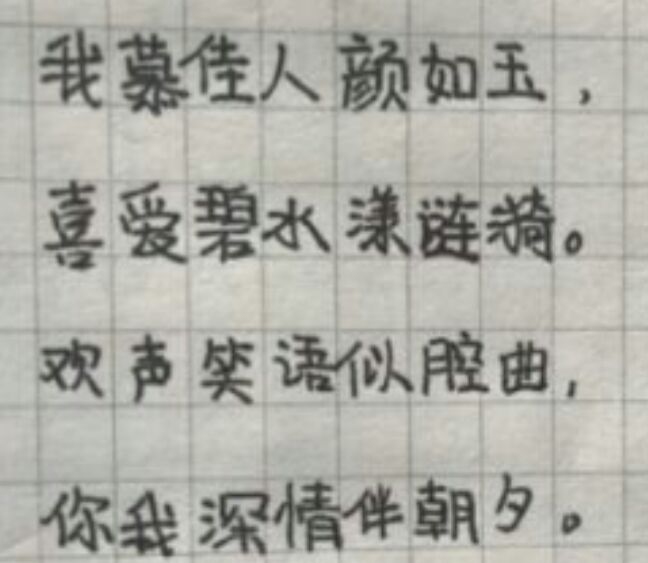 我慕佳人颜如玉，
喜爱碧水漾涟漪。
欢声笑语似腔曲，
你我深情伴朝夕。